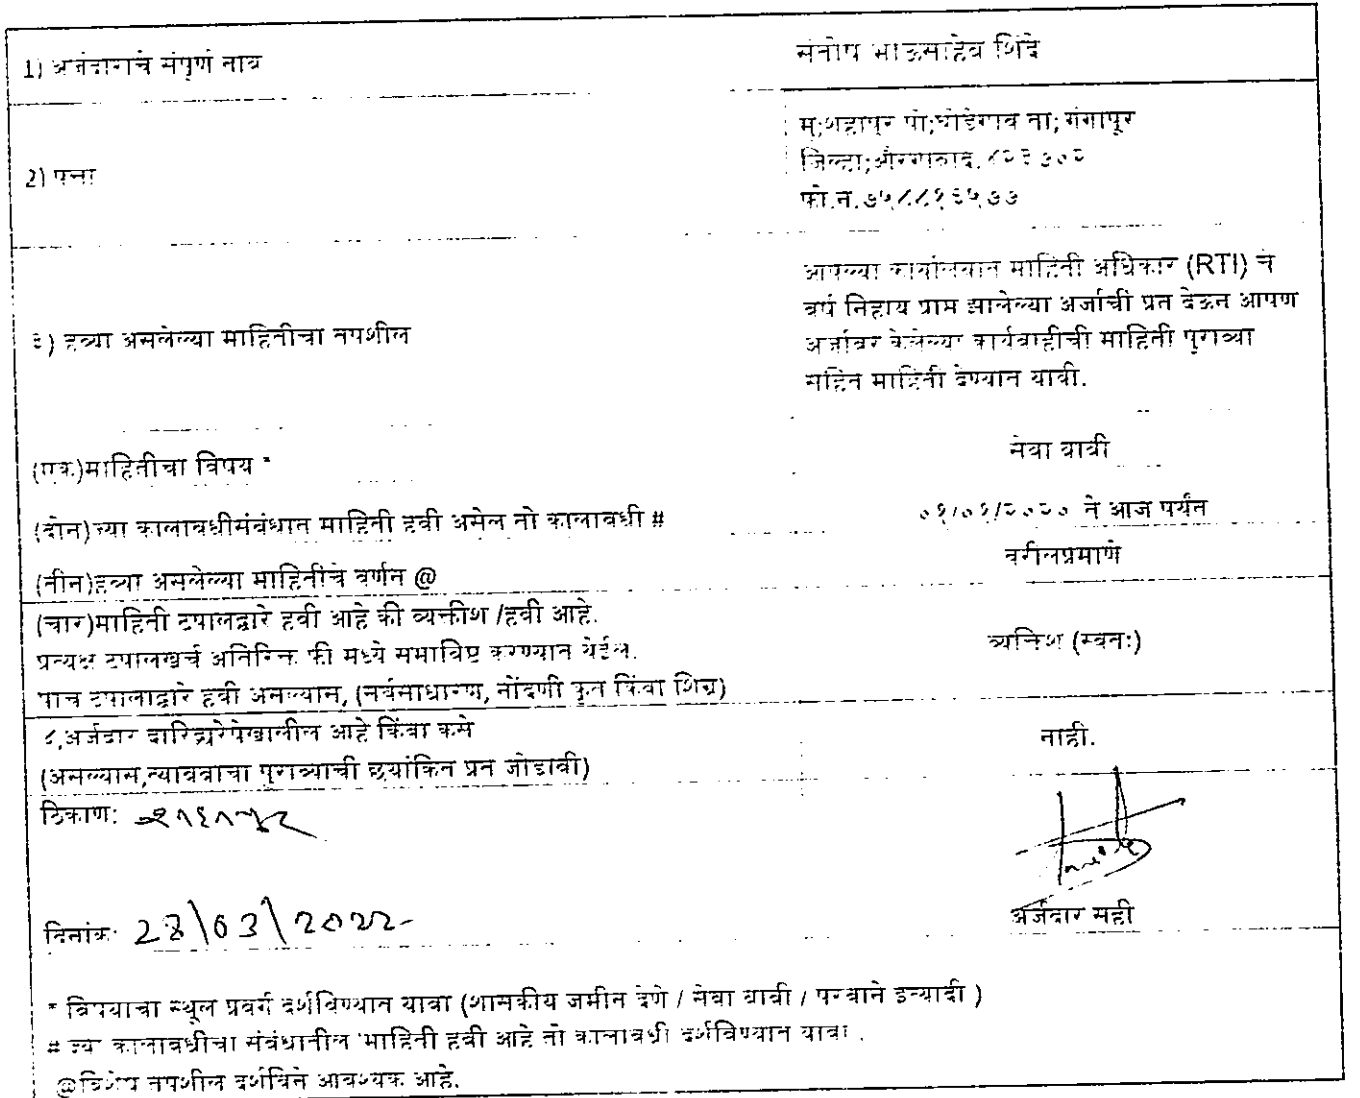 1) अर्जदाराचे संपूर्ण नाव
संतोष भाऊसाहेब शिंदे
2) पत्ता
मु;शहापूर पो;घोडेगाव ता; गंगापूर
जिल्हा;औरंगाबाद. ४२३७०२
फो.न.७५८८१६५७७
३) हव्या असलेल्या माहितीचा तपशील
आपल्या कार्यालयात माहिती अधिकार (RTI) चे
वर्ष निहाय प्राप्त झालेल्या अर्जाची प्रत देऊन आपण
अर्जावर केलेल्या कार्यवाहीची माहिती पुराव्या
सहित माहिती देण्यात यावी.
(एक)माहितीचा विषय *
सेवा बाबी
(दोन)ज्या कालावधीसंबंधात माहिती हवी असेल तो कालावधी #
०१/०१/२०२० ते आज पर्यंत
(तीन)हव्या असलेल्या माहितीचे वर्णन @
वरीलप्रमाणे
(चार)माहिती टपालद्वारे हवी आहे की व्यक्तीश /हवी आहे.
प्रत्यक्ष टपालखर्च अतिरिक्त फी मध्ये समाविष्ट करण्यात येईल.
पाच टपालाद्वारे हवी असल्यास, (सर्वसाधारण, नोंदणी कृत किंवा शिघ्र)
व्यक्तिश (स्वतः)
८,अर्जदार दारिद्य्ररेषेखालील आहे किंवा कसे
(असल्यास,त्याबवाचा पुराव्याची छयांकित प्रत जोडावी)
नाही.
ठिकाण:
दिनांक: 28\03\2022
अर्जदार सही
* विषयाचा स्थूल प्रवर्ग दर्शविण्यात यावा (शासकीय जमीन देणे / सेवा बाबी / परवाने इत्यादी )
# ज्या कालावधीचा संबंधातील माहिती हवी आहे तो कालावधी दर्शविण्यात यावा .
@विशेष तपशील दर्शविते आवश्यक आहे.